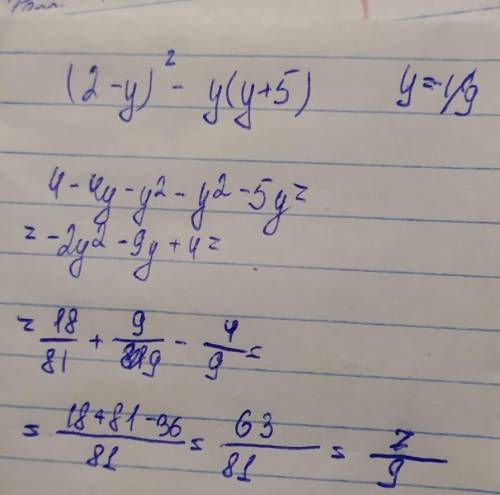 (2-y)² - y(y+5) y=-1/9
4-4y-y²-y²-5y=
=-2y²-9y+4=
=18/81+9/9-4/9=
=(18+81-36)/81=63/81=7/9